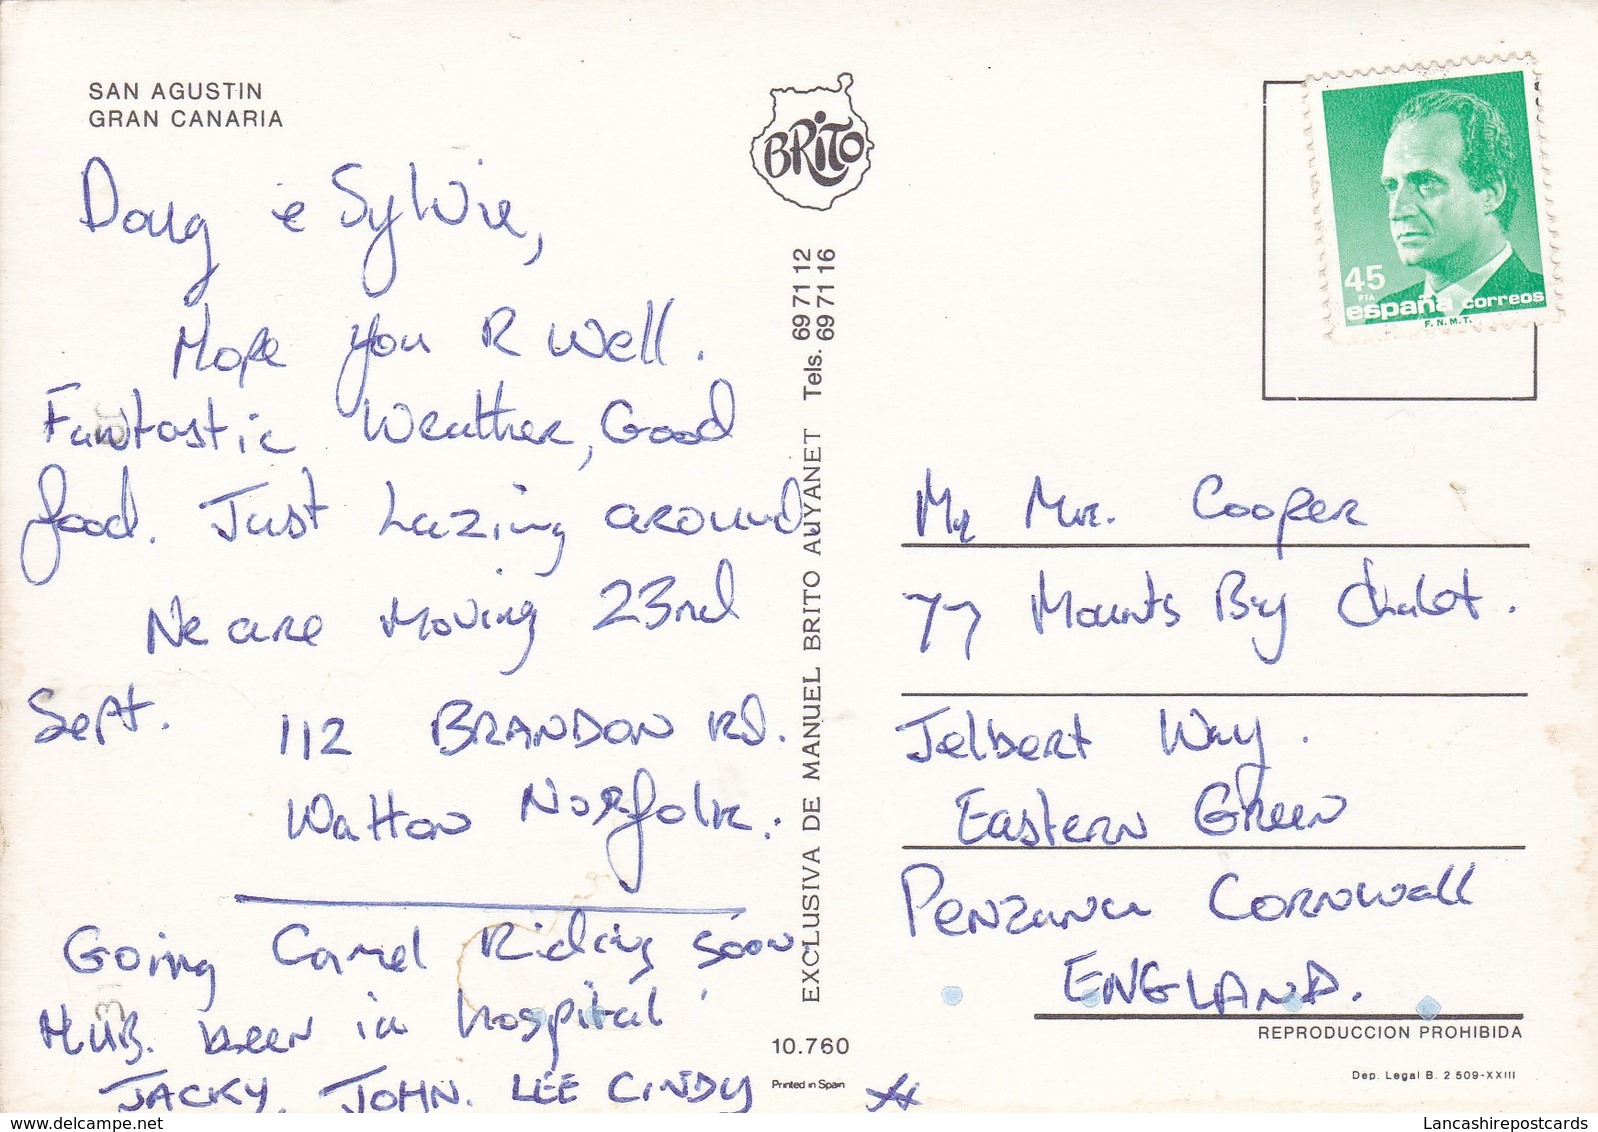 SAN AGUSTIN
GRAN CANARIA
Doug & Sylvie,
Hope you R well.
Fantastic Weather, Good
food. Just Lazing around
We are moving 23rd
Sept. 112 BRANDON Rd.
Watton Norfolk.
Going Camel Riding soon
Hub. been in hospital
JACKY, JOHN. LEE CINDY
BRITO
EXCLUSIVA DE MANUEL BRITO AUYANET Tels. 69 71 12
69 71 16
10.760
Printed in Spain
45
PTA
españa correos
F.N.M.T.
Cooper
77 Mounts Bay Chalet.
Jelbert Way.
Eastern Green
Penzance Cornwall
ENGLAND.
REPRODUCCION PROHIBIDA
Dep. Legal B. 2.509-XXIII
delcampe.net
Lancashirepostcards